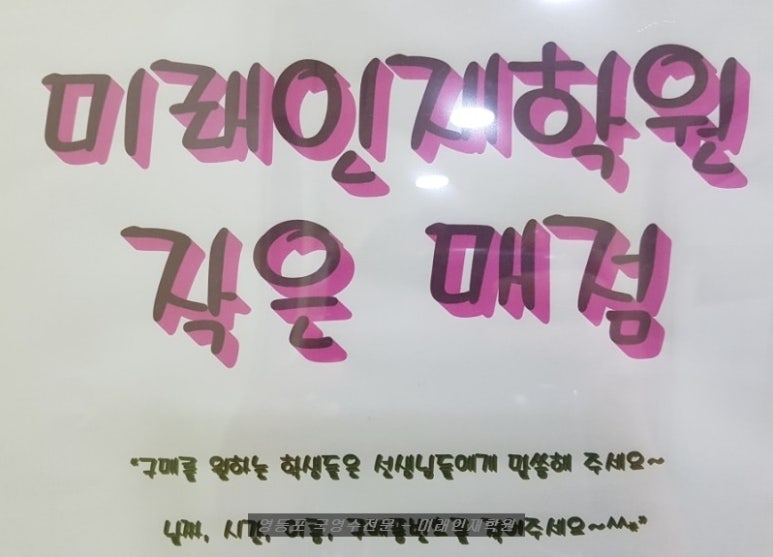 미래인재학원
작은 매점
*구매를 원하는 학생들은 선생님들에게 말씀해 주세요~
날짜, 시간, 이름, 적어주세요~^^*"
영등포 국영수전문 - 미래인재학원